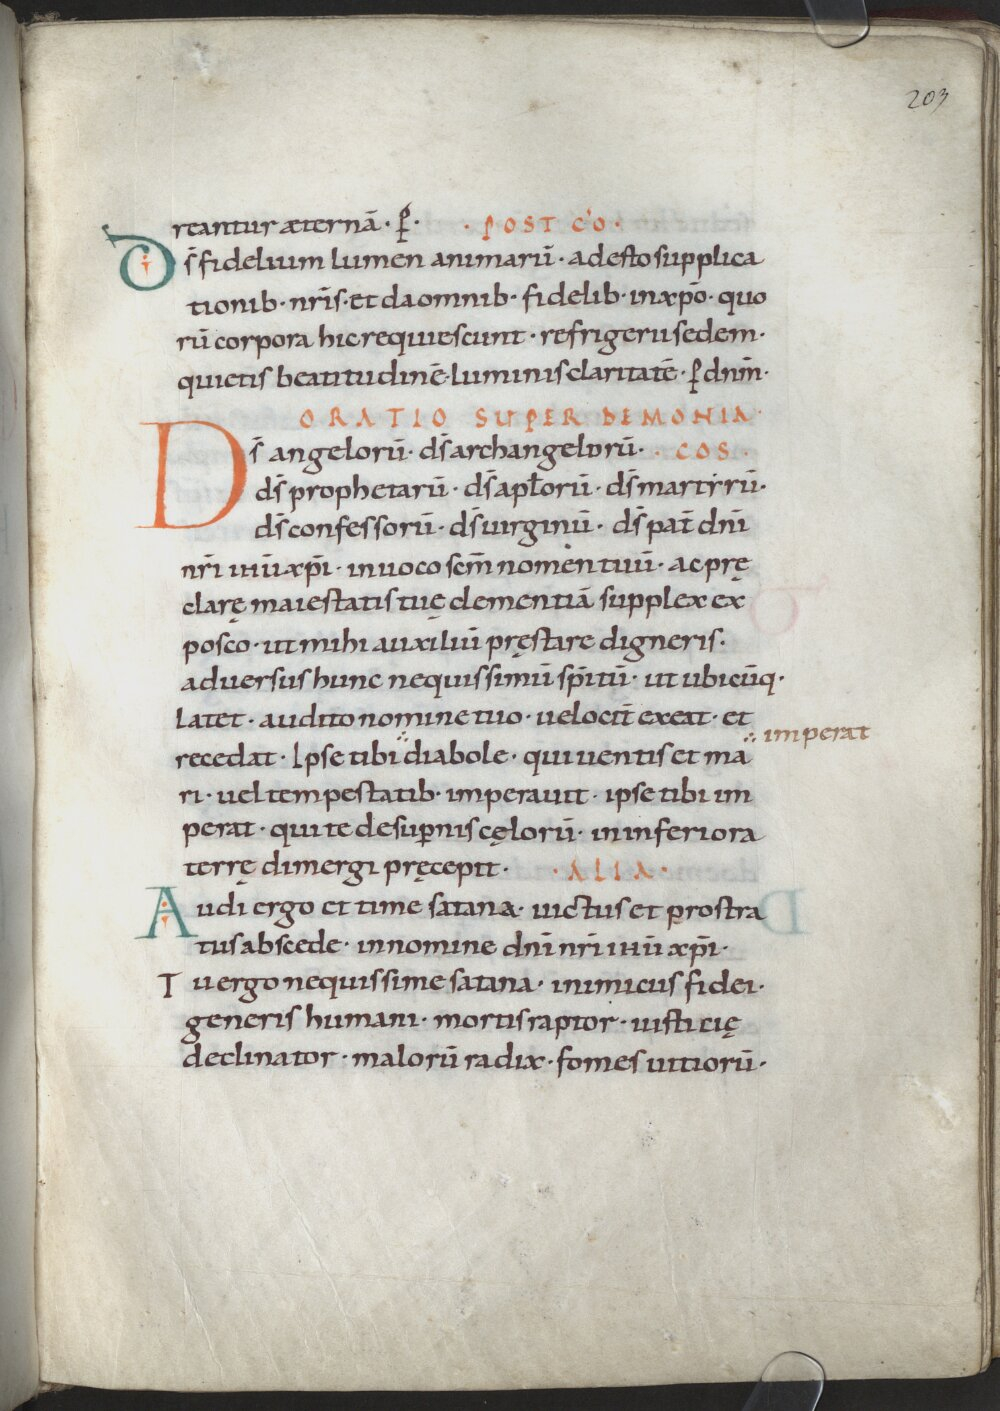 203
reantur æternā · p̱ · · POST CO ·
Ds̄ fidelium lumen animarū · adesto supplica
tionib · nr̄is · et da omnib · fidelib · in xp̄o · quo
rū corpora hic requiescunt · refrigerii sedem ·
quietis beatitudinē · luminis claritatē · p̱ dnm̄ ·
ORATIO SUPER DEMONIA ·
Ds̄ angelorū · ds̄ archangelorū · · COS ·
ds̄ prophetarū · ds̄ apl̄orū · ds̄ martyrū ·
ds̄ confessorū · ds̄ virginū · ds̄ pat̄ dn̄i
nr̄i ihū xp̄i · invoco sc̄m nomen tuū · ac prę
clarę maiestatis tuę clementiā supplex ex
posco · ut mihi auxiliū pręstare digneris ·
adversus hunc nequissimū sp̄itū · ut ubicūq ·
latet · audito nomine tuo · velocit̄ exeat · et
∴ imperat
recedat · Ipse tibi ∴ diabole · qui ventis et ma
ri · vel tempestatib · imperavit · ipse tibi im
perat · qui te de sup̱nis cęlorū · in inferiora
terrę dimergi pręcepit · · ALIA ·
Audi ergo et time satana · victus et prostra
tus abscede · in nomine dn̄i nr̄i ihū xp̄i ·
Tu ergo nequissime satana · inimicus fidei ·
generis humani · mortis raptor · iusticię
declinator · malorū radix · fomes vitiorū ·